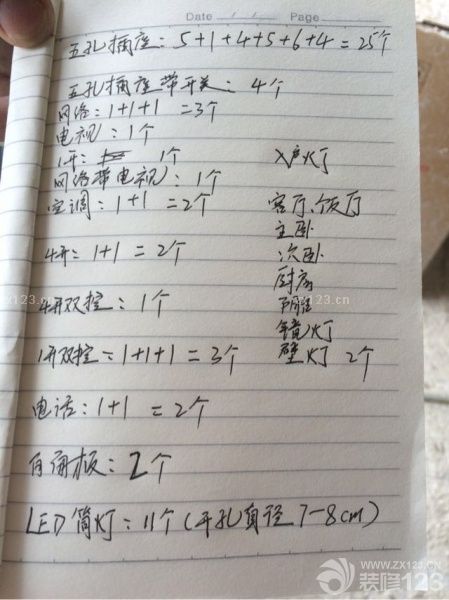 Date / / Page
五孔插座：5+1+4+5+6+4=25个
五孔插座带开关：4个
网络：1+1+1 =3个
电视：1个
1开： 1个
入户灯
网络带电视：1个
空调：1+1=2个
客厅.饭厅
主卧
4开：1+1=2个
次卧
厨房
阳台
4开双控：1个
镜灯
1开双控：1+1+1=3个
壁灯 2个
电话：1+1 =2个
白面板：2个
LED筒灯：11个(开孔直径7-8cm)
zx123.cn
WWW.ZX123.CN
装修123